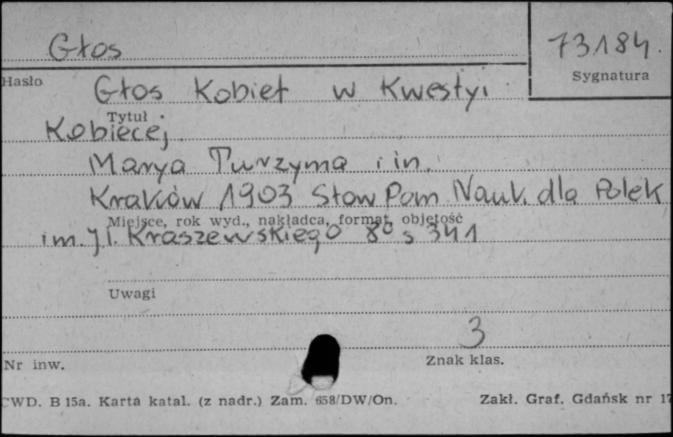 Głos
73184.
Hasło
Sygnatura
Głos Kobiet w Kwestyi
Tytuł
Kobiecej
Marya Turzyma i in.
Kraków 1903 Stow Pom. Nauk. dla Polek
Miejsce, rok wyd., nakładca, format, objętość
im. J. I. Kraszewskiego 8° s 341
Uwagi
3
Nr inw.
Znak klas.
CWD. B 15a. Karta katal. (z nadr.) Zam. 658/DW/On. Zakł. Graf. Gdańsk nr 17